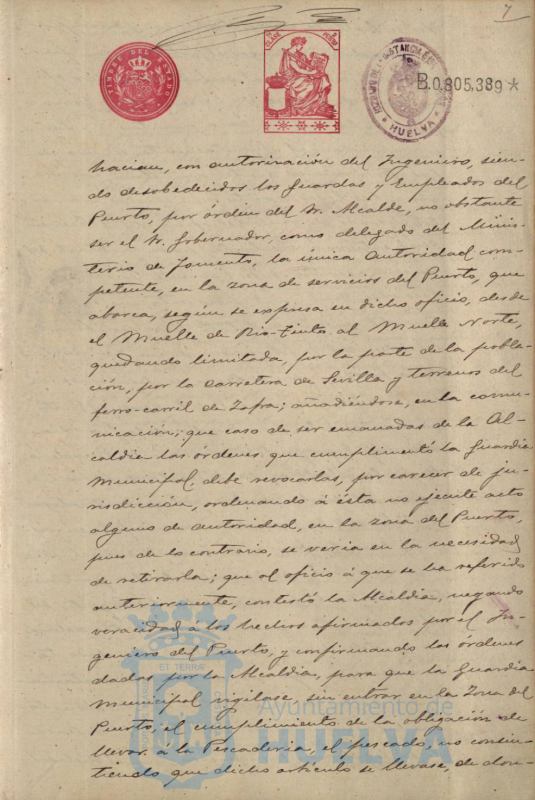 7
TIMBRE DEL ESTADO
CLASE
B.0.805,389*
HUELVA
hacian, con autorización del Ingeniero, sien-
do desobedecidos los Guardas y Empleados del
Puerto, por órden del Sr. Alcalde, no obstante
ser el Sr. Gobernador, como delegado del Minis-
terio de Fomento, la única Autoridad com-
petente, en la zona de servicios del Puerto, que
abarca, según se expresa en dicho oficio, desde
el Muelle de Rio-Tinto al Muelle Norte,
quedando limitada, por la parte de la pobla-
ción, por la carretera de Sevilla y terrenos del
ferro-carril de Zafra; añadiéndose, en la comu-
nicación; que caso de ser emanadas de la Al-
caldia las órdenes que cumplimentó la Guardia
Municipal, debe revocarlas, por carecer de ju-
risdicción, ordenando á ésta no ejecute acto
alguno de autoridad, en la zona del Puerto,
pues de lo contrario, se veria en la necesidad
de retirarla; que al oficio á que se ha referido
anteriormente, contestó la Alcaldia, negando
veracidad a los hechos afirmados por el In-
geniero del Puerto, y confirmando las órdenes
dadas por la Alcaldia, para que la Guardia
Municipal vigilase, sin entrar en la Zona del
Puerto, el cumplimiento de la obligación de
llevar á la Pescaderia, el pescado, no consin-
tiendo que dicho artículo se llevase, de don-
ET TERRA
Ayuntamiento de
HUELVA